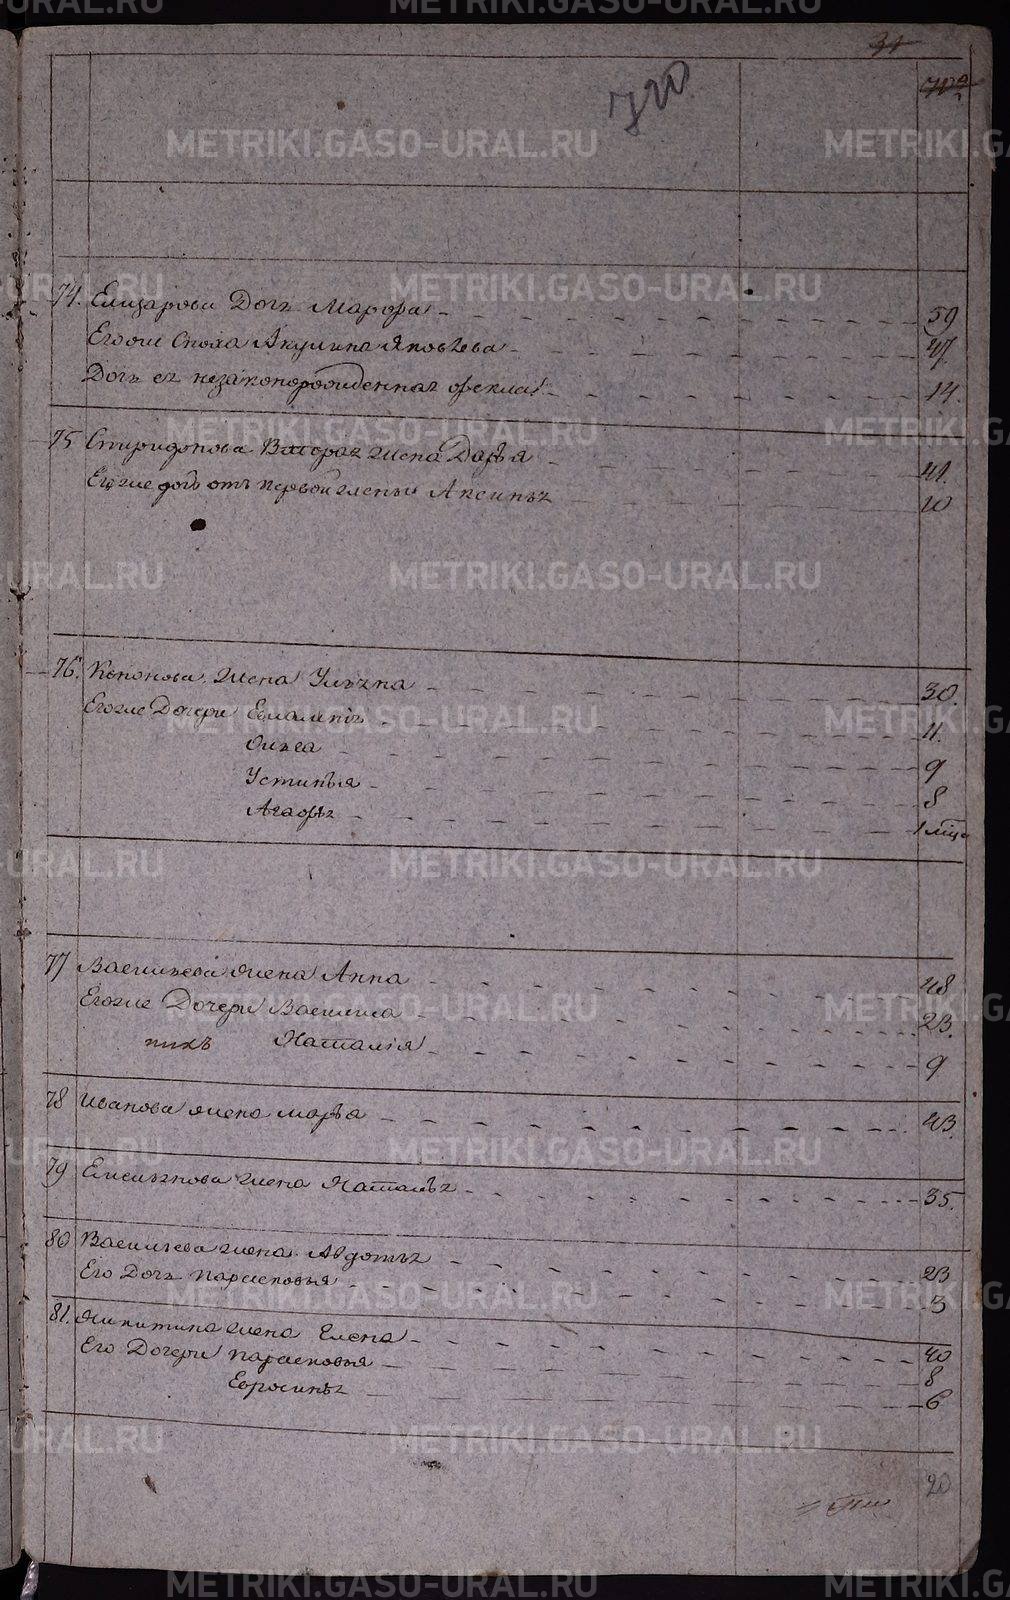 31
710
74. Елизарова Дочь Марфа 59
Егоже Сноха Акулина Яковлева 47.
Дочь ея незаконорожденная Фекла 14.
75 Спиридонова Вторая жена Дарья 41.
Егоже дочь отъ первой жены Аксинья 10
76. Кононова жена Ульяна 30.
Егоже Дочери Евлампія 11.
Ольга 9
Устинья 8
Агафья 1 мца
77 Васильева жена Анна 48
Егоже Дочери Василиса 23.
нихъ Наталія 9
78 Иванова жена Марья 43.
79 Емельянова жена Наталья 35.
80 Васильева жена Авдотья 23
Его Дочь Парасковья 3
81. Никитина жена Елена 40
Его Дочери Парасковья 8
Евросинья 6
20
METRIKI.GASO-URAL.RU